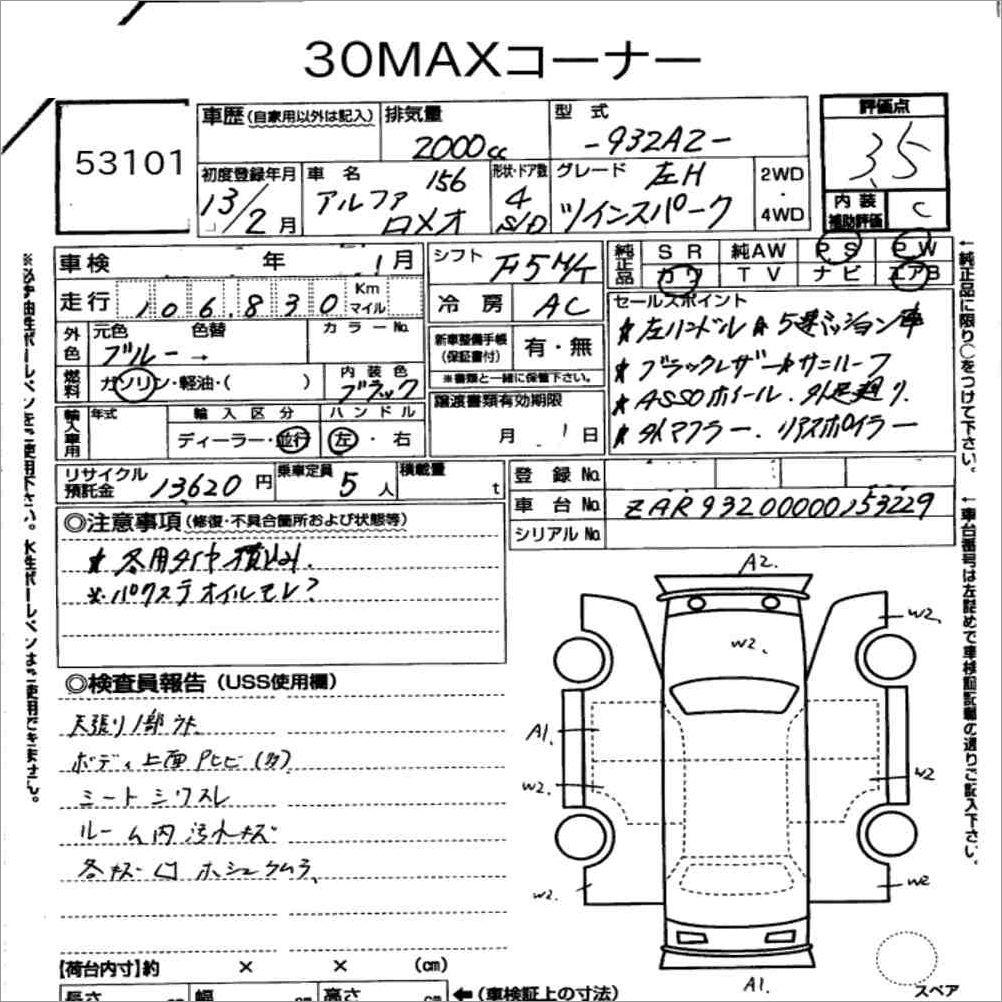 30MAXコーナー
53101
車歴 (自家用以外は記入)
排気量
2000cc
型式
-932A2-
評価点
3.5
内装補助評価
C
初度登録年月
13/2月
車名
アルファ 156
ロメオ
形状・ドア数
4
S/D
グレード
左H
ツインスパーク
2WD
・
4WD
車検 年 1月
シフト
F5M/T
純正品
SR 純AW PS PW
カワ TV ナビ エアB
走行 106,830 Km マイル
冷房 AC
セールスポイント
外色
元色 色替
ブルー→
カラーNo.
新車整備手帳
(保証書付)
有・無
※書類と一緒に保管下さい。
燃料
ガソリン・軽油・( )
内装色
ブラック
★左ハンドル ★5速ミッション車
★ブラックレザー ★サンルーフ
★ASSOホイール.外足廻り
★外マフラー.リアスポイラー
輸入車用
年式
輸入区分
ディーラー・並行
ハンドル
左・右
譲渡書類有効期限
月 1日
リサイクル預託金
13,620円
乗車定員
5人
積載量
t
登録No.
車台No.
ZAR93200000153229
シリアルNo.
◎注意事項(修復・不具合箇所および状態等)
★冬用タイヤ積込み.
※パワステオイルモレ?
◎検査員報告(USS使用欄)
天張り1部ウキ
ボディ上面PヒビI(多)
シートシワスレ
ルーム内汚レキズ
各キズ凹ホシュウムラ
A2.
W2
W2.
A1.
W2.
W2
W2.
W2
A1.
スペア
【荷台内寸】約 × × (cm)
長さ cm 幅 cm 高さ cm ←(車検証上の寸法)
※必ず油性ボールペンをご使用下さい。水性ボールペンはご使用できません。
←純正品に限り○をつけて下さい。
←車台番号は左詰めで車検証記載の通りご記入下さい。